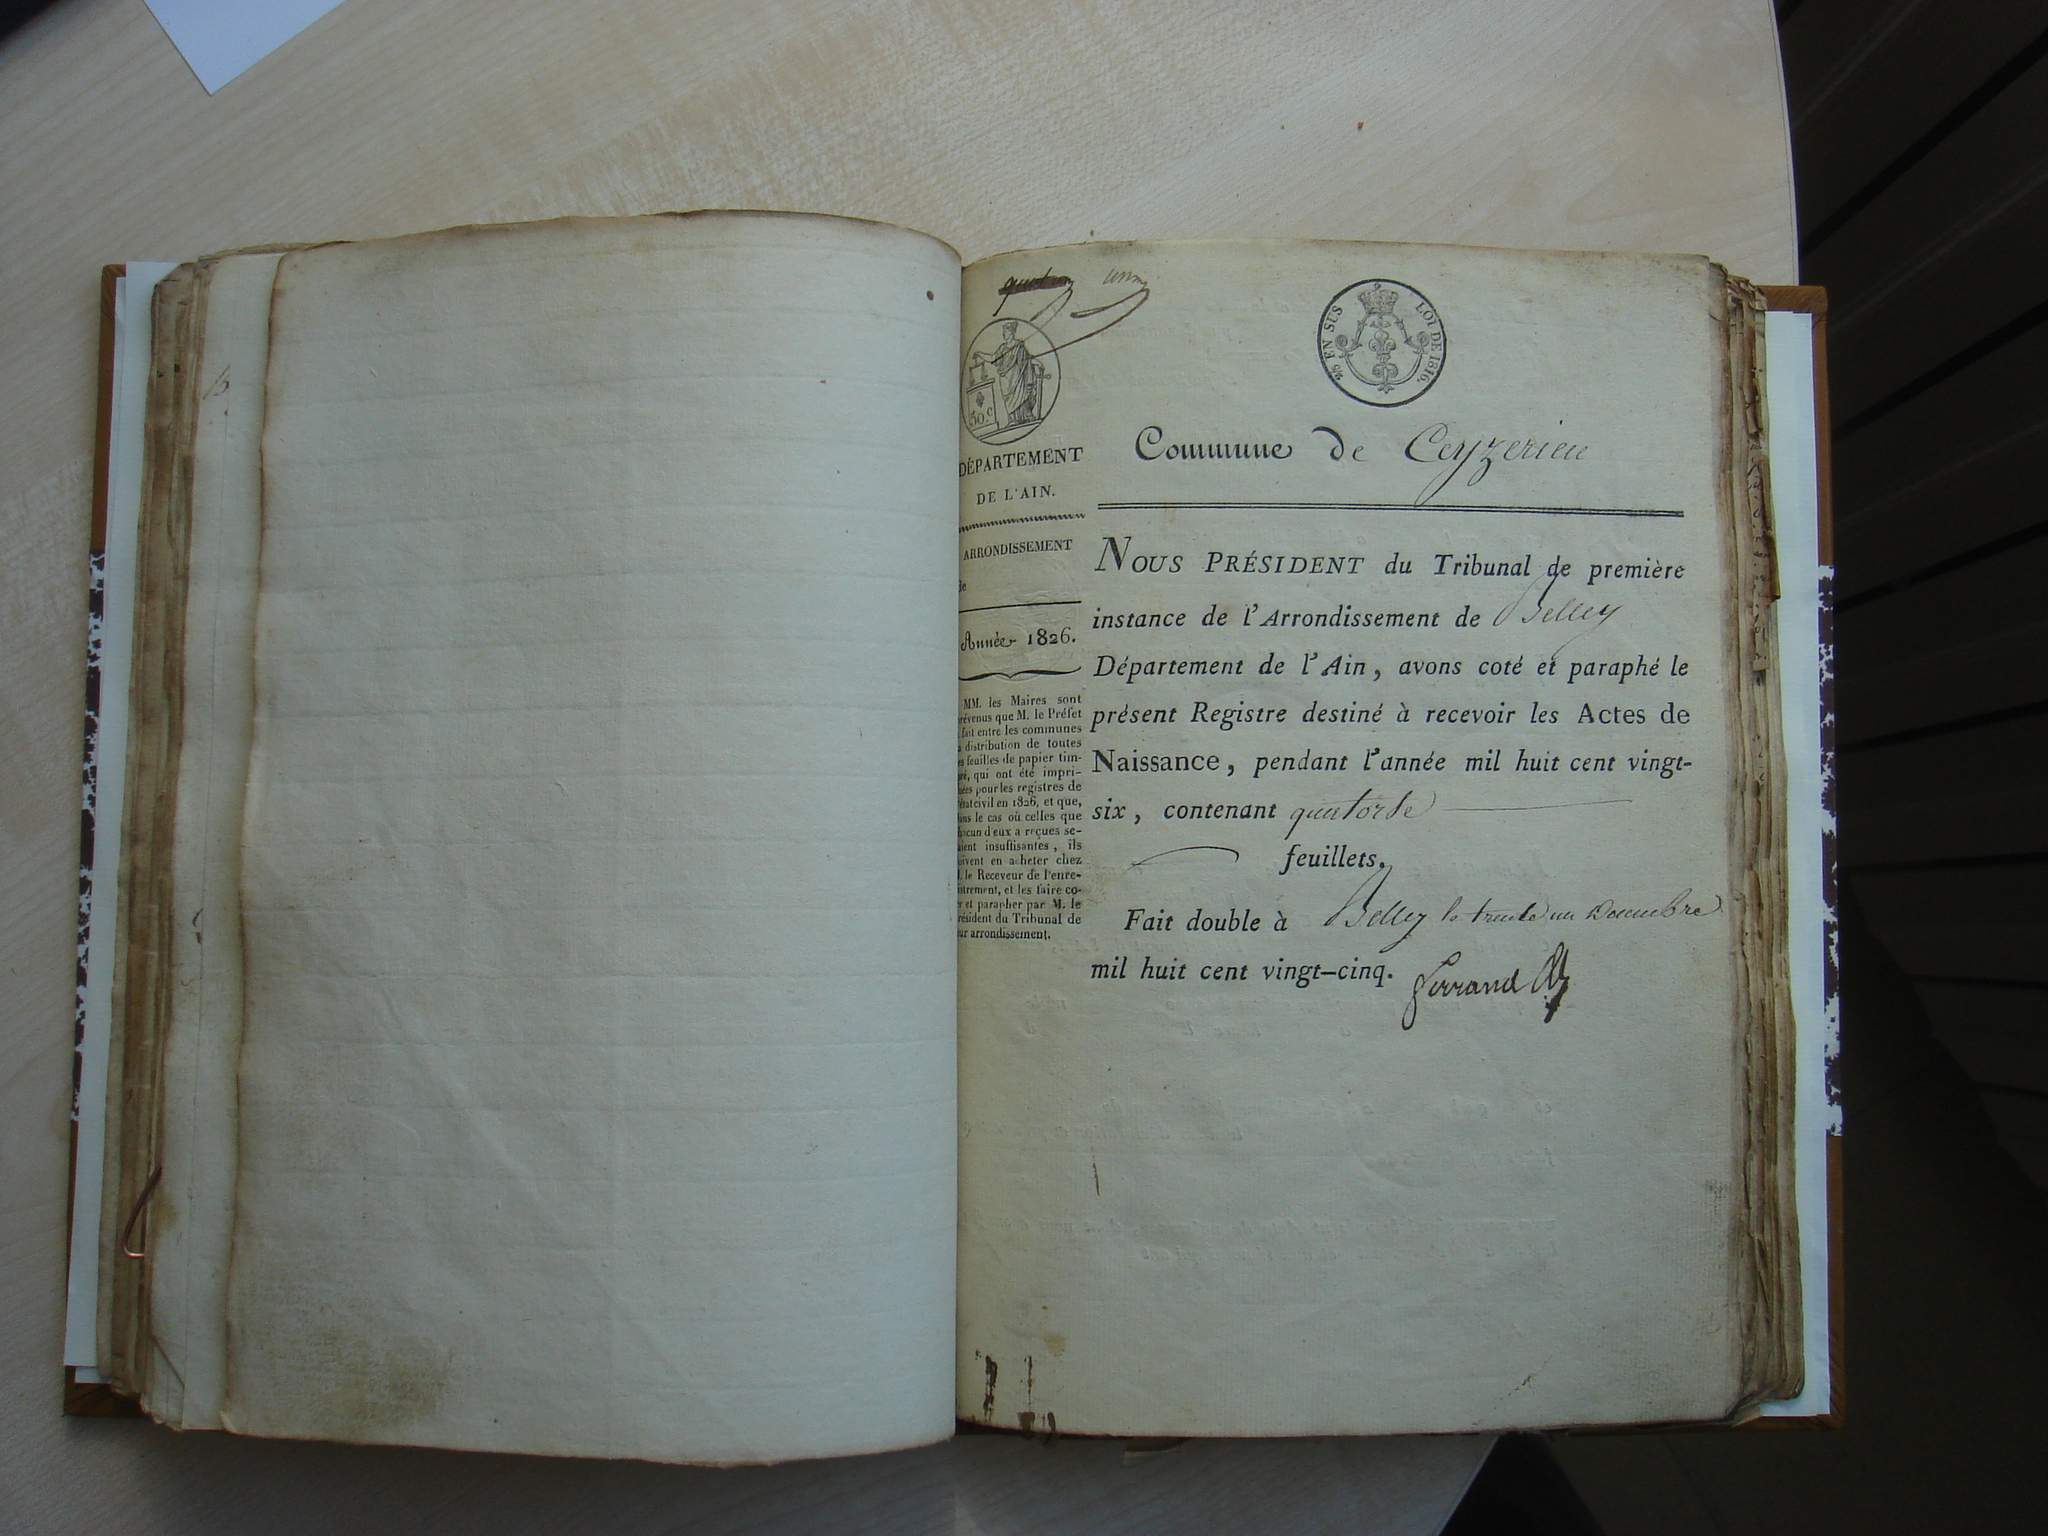 unm
25 EN SUS
LOI DE 1816.
50.c
DÉPARTEMENT
DE L'AIN.
ARRONDISSEMENT
de
Année 1826.
MM. les Maires sont
prévenus que M. le Préfet
fait entre les communes
a distribution de toutes
es feuilles de papier tim-
ré, qui ont été impri-
mées pour les registres de
l'état civil en 1826, et que,
dans le cas où celles que
hacun d'eux a reçues se-
aient insuffisantes, ils
oivent en acheter chez
. le Receveur de l'enre-
istrement, et les faire co-
er et parapher par M. le
résident du Tribunal de
eur arrondissement.
Commune de Ceyzerieu
NOUS PRÉSIDENT du Tribunal de première
instance de l'Arrondissement de Belley
Département de l'Ain, avons coté et paraphé le
présent Registre destiné à recevoir les Actes de
Naissance, pendant l'année mil huit cent vingt-
six, contenant quatorse
feuillets.
Fait double à Belley le trente un Decembre
mil huit cent vingt-cinq. Ferrand